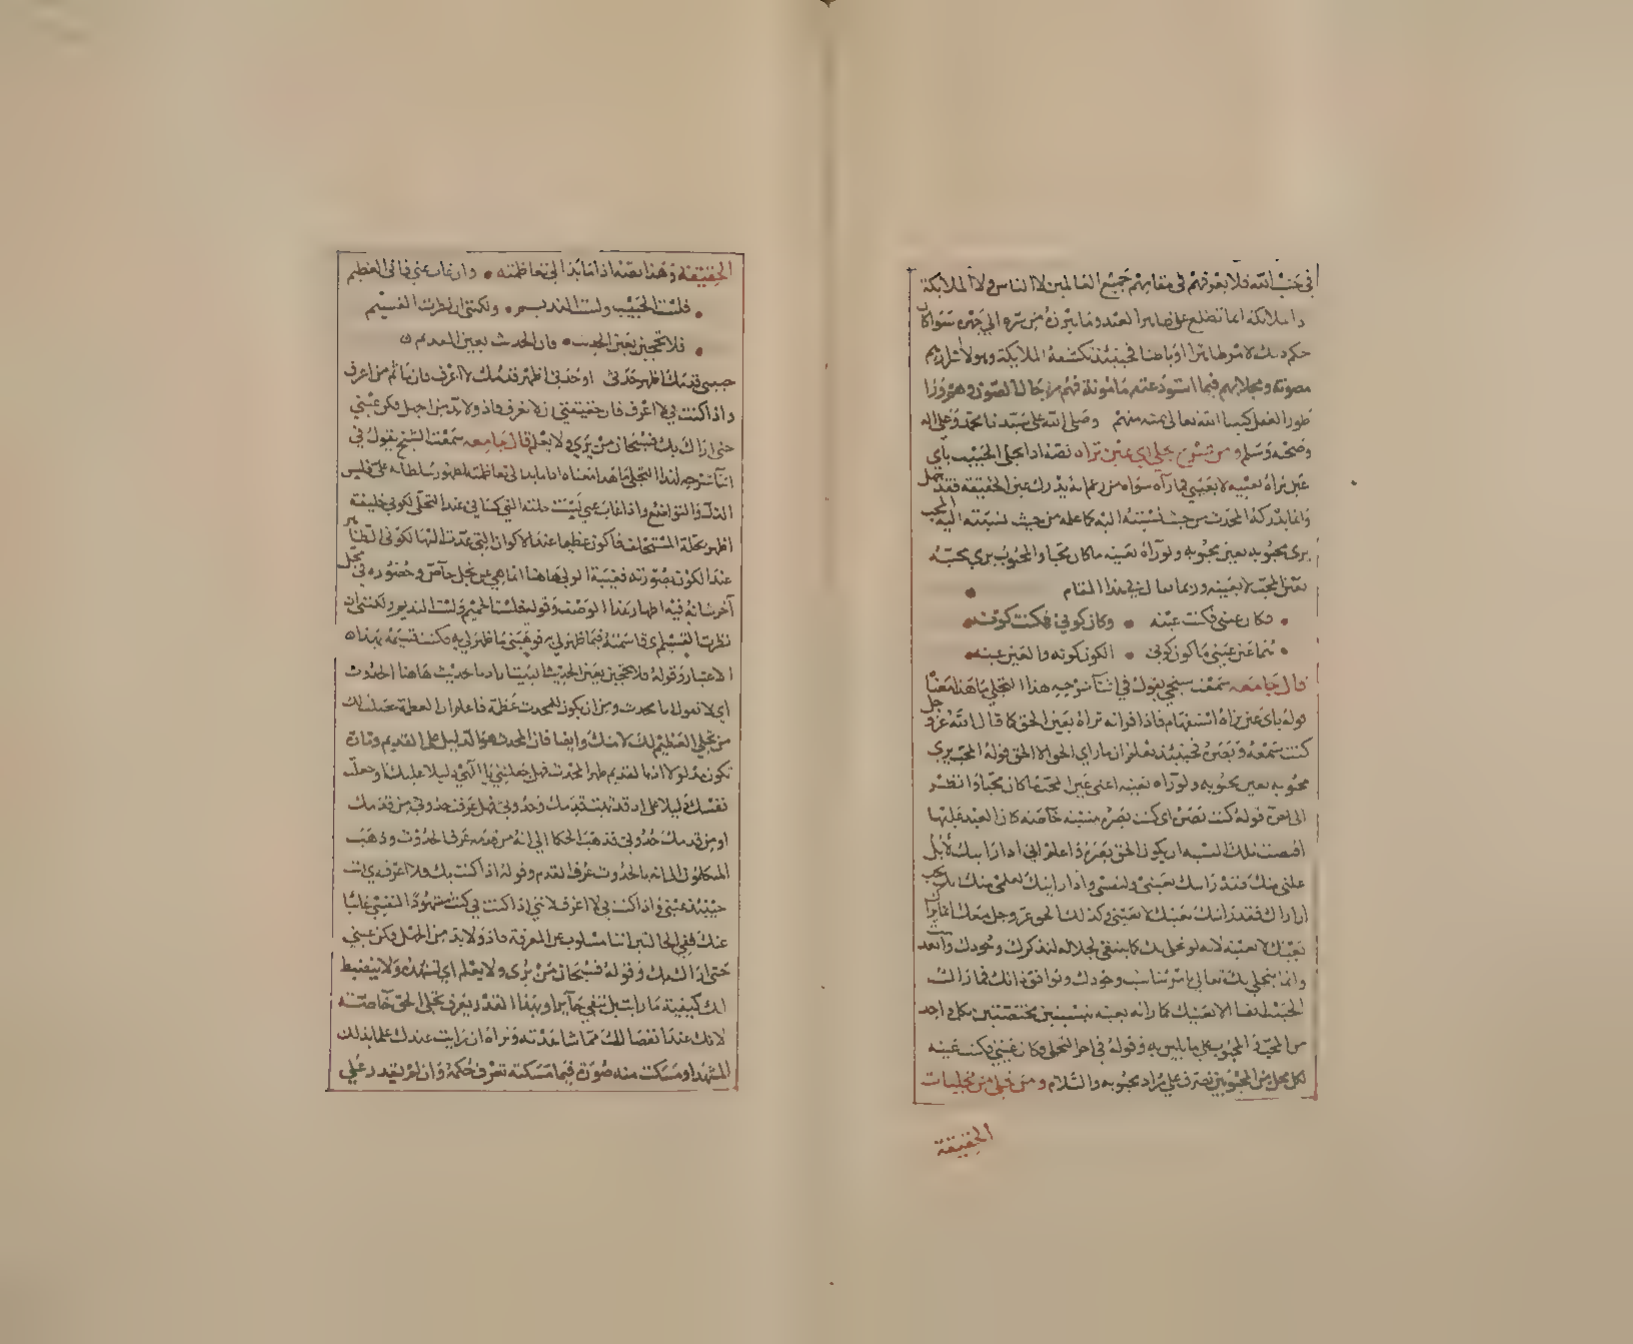 في جنب الله فلا يعرفهم في مقامهم جميع العالمين لا الناس ولا الملائكة
حكم ذلك لامر ظاهرا او باطنا فحينئذ تكشفه الملائكة وهولا
مصونة ومجلاهم فيما استودعته مامونة فهم رجال الصون وهو ورا
طور العقل كيسا الله تعالى بمنه منهم وصلى الله على سيدنا محمد وعلى اله
وصحبه وسلم ومن شرح تجلي اي عين تراه نصه اذا تجلى الحبيب باي
عين تراه بعينه لا بعيني فما رآه سواه من زعم انه يدرك عين الحقيقة فقد جهل
وانما يدركه المحدث من حيث نسبته اليه كما علمه من حيث نسبته اليه المحب
يرى محبوبه بعين محبوبه ولو رآه بعينه ما كان محبا والمحبوب يرى محبه
بعين المحب لا بعينه وربما يقال في هذا المقام
فكان عيني فكنت عينه وكان كوني فكنت كونه
الكون كونه والعين عينه
قال جامعه سمعت شيخي يقول في اثناء شرحه هذا التجلي ما هذا معناه
قوله باي عين تراه استفهام فاذا قوله تراه بعين الحق كما قال الله عز وجل
كنت سمعه وبصره فحينئذ تعلم ان ما راى الحق الا الحق قوله المحب يرى
محبوبه بعين محبوبه ولو رآه بعينه اعني عين المحب ما كان محبا وانظر
الى معنى قوله كنت بصره اي كنت بصره بنسبة خاصة كان العبد عليها
اقتضت تلك النسبة ان يكون الحق بصره واعلم اني اذا رايتك لا بل
علمي منك فقد رايتك بعيني ولنفسي واذا رايتك لعلمي منك انك تحب
ان اراك فقد رايتك بعينك لا بعيني وكذلك الحق عز وجل معك انما يراك
بعينك لا بعينه لانه لو تجلى لك كما ينبغي لجلاله لتدكدك وجودك وانعدم
وانما يتجلى لك تعالى بامر يناسب وجودك وتوافق ذاتك فما زالت
من المحب والمحبوب على ما يليق به وقوله في اخر التجلي وكان عيني فكنت عينه
لكل محل من المحبوبين تصرف على مراد محبوبه والسلام ومن تجلي من تجليات
الحقيقة
الحقيقة وهذا نصه اذا ما بدا لي تعاظمته وان غاب عني فاني العظيم
فلست الحبيب ولست النديم ولكنني ان نظرت القسيم
فلا تحجبن بعين الحديث فان الحدث بعين القديم
حبيبي قدمك اظهر حدثي او حدثي اظهر قدمك لا اعرف فان ما ثم من اعرف
واذا كنت بي لا اعرف فان حقيقتي ان لا تعرف فاذ ولا بد من الجهل فكن عيني
حتى اراك بك فسبحان من يرى ولا يعلم قال جامعه سمعت الشيخ يقول في
اثناء شرحه لهذا التجلي ما هذا معناه اذا ما بدا لي تعاظمته لظهور سلطانه علي فليس
الذل والتواضع واذا غاب عني لبست حلته التي كساني عند التجلي لكوني خليفة
اظهر بحلة المستخلف فاكون عظيما عند الاكوان التي عدت اليها لكوني الظاهر
عند الكون بصورته فغيبة الولي هاهنا انما هي عن تجل خاص وحضوره في تجل
آخر شانه فيه اظهار هذا الوصف وقوله فلست الحميم ولست النديم ولكنني ان
نظرت القسيم اي قاسمته فيما ظهر لي به فوهبني ما ظهر لي به فكنت قسيمه بهذا
الاعتبار وقوله فلا تحجبن بعين الحديث البيت اراد بالحديث هاهنا الحدوث
اي لا تقول ما يحدث ومن ان يكون للمحدث عظمة فاعلم ان العظمة حصلت لك
من تجلي العظيم لك لا منك وايضا فان المحدث هو الدليل على القديم ومتى
تكون مدلولا اذا بالقديم ظهر المحدث فهل جعلتني يا الهي دليلا عليك او جعلت
نفسك دليلا علي اذ قد ثبت قدمك وحدوثي فهل عرف حدوثي من قدمك
او من قدمك حدوثي قد ذهب الحكما الى انه من قدمه عرف الحدوث وذهب
المتكلمون الى انه بالحدوث عرف القدم وقوله اذا كنت بك فلا اعرف اي انت
حينئذ عيني واذا كنت بي لا اعرف لانني اذا كنت بي كنت مشهودا لنفسي غائبا
عنك ففي الحالتين انا مسلوب عن المعرفة فاذ ولا بد من الجهل فكن عيني
حتى اراك بك وقوله فسبحان من يرى ولا يعلم اي تشهده ولا ينضبط
لك كيفية ما رايت بل تبقى حائرا وبهذا القدر يعرف تجلي الحق خاصته
لانك عند انفصالك مما شاهدته وتراه ان رايت عندك علما بذلك
المشهد او مسكت منه صورة فيما مسكته تعرف حكمه وان لم يقدر على